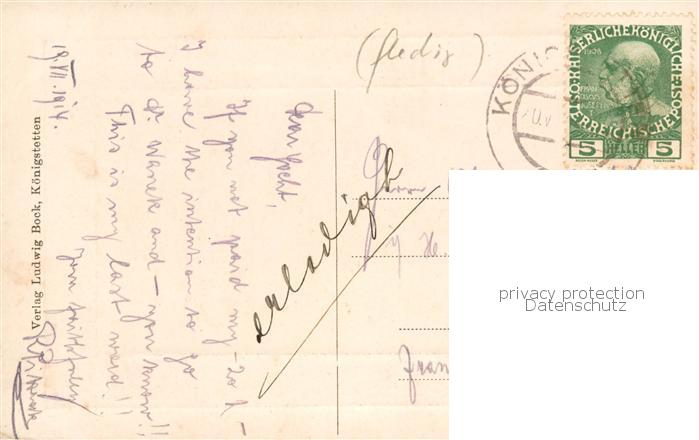 (ledig)
19.VII.1914.
Dear
If you not paid my 20 h –
I have the intention to go
to Dr. Wanek and – you know!!
This is my last word!!
Your
erledigt
Verlag Ludwig Bock, Königstetten
Herrn
KÖNIG
KAISERLICHE KÖNIGLICHE ÖSTERREICHISCHE POST
1908
FRAN
CISCUS
JOSEPH I
5 HELLER 5
Fran
privacy protection
Datenschutz